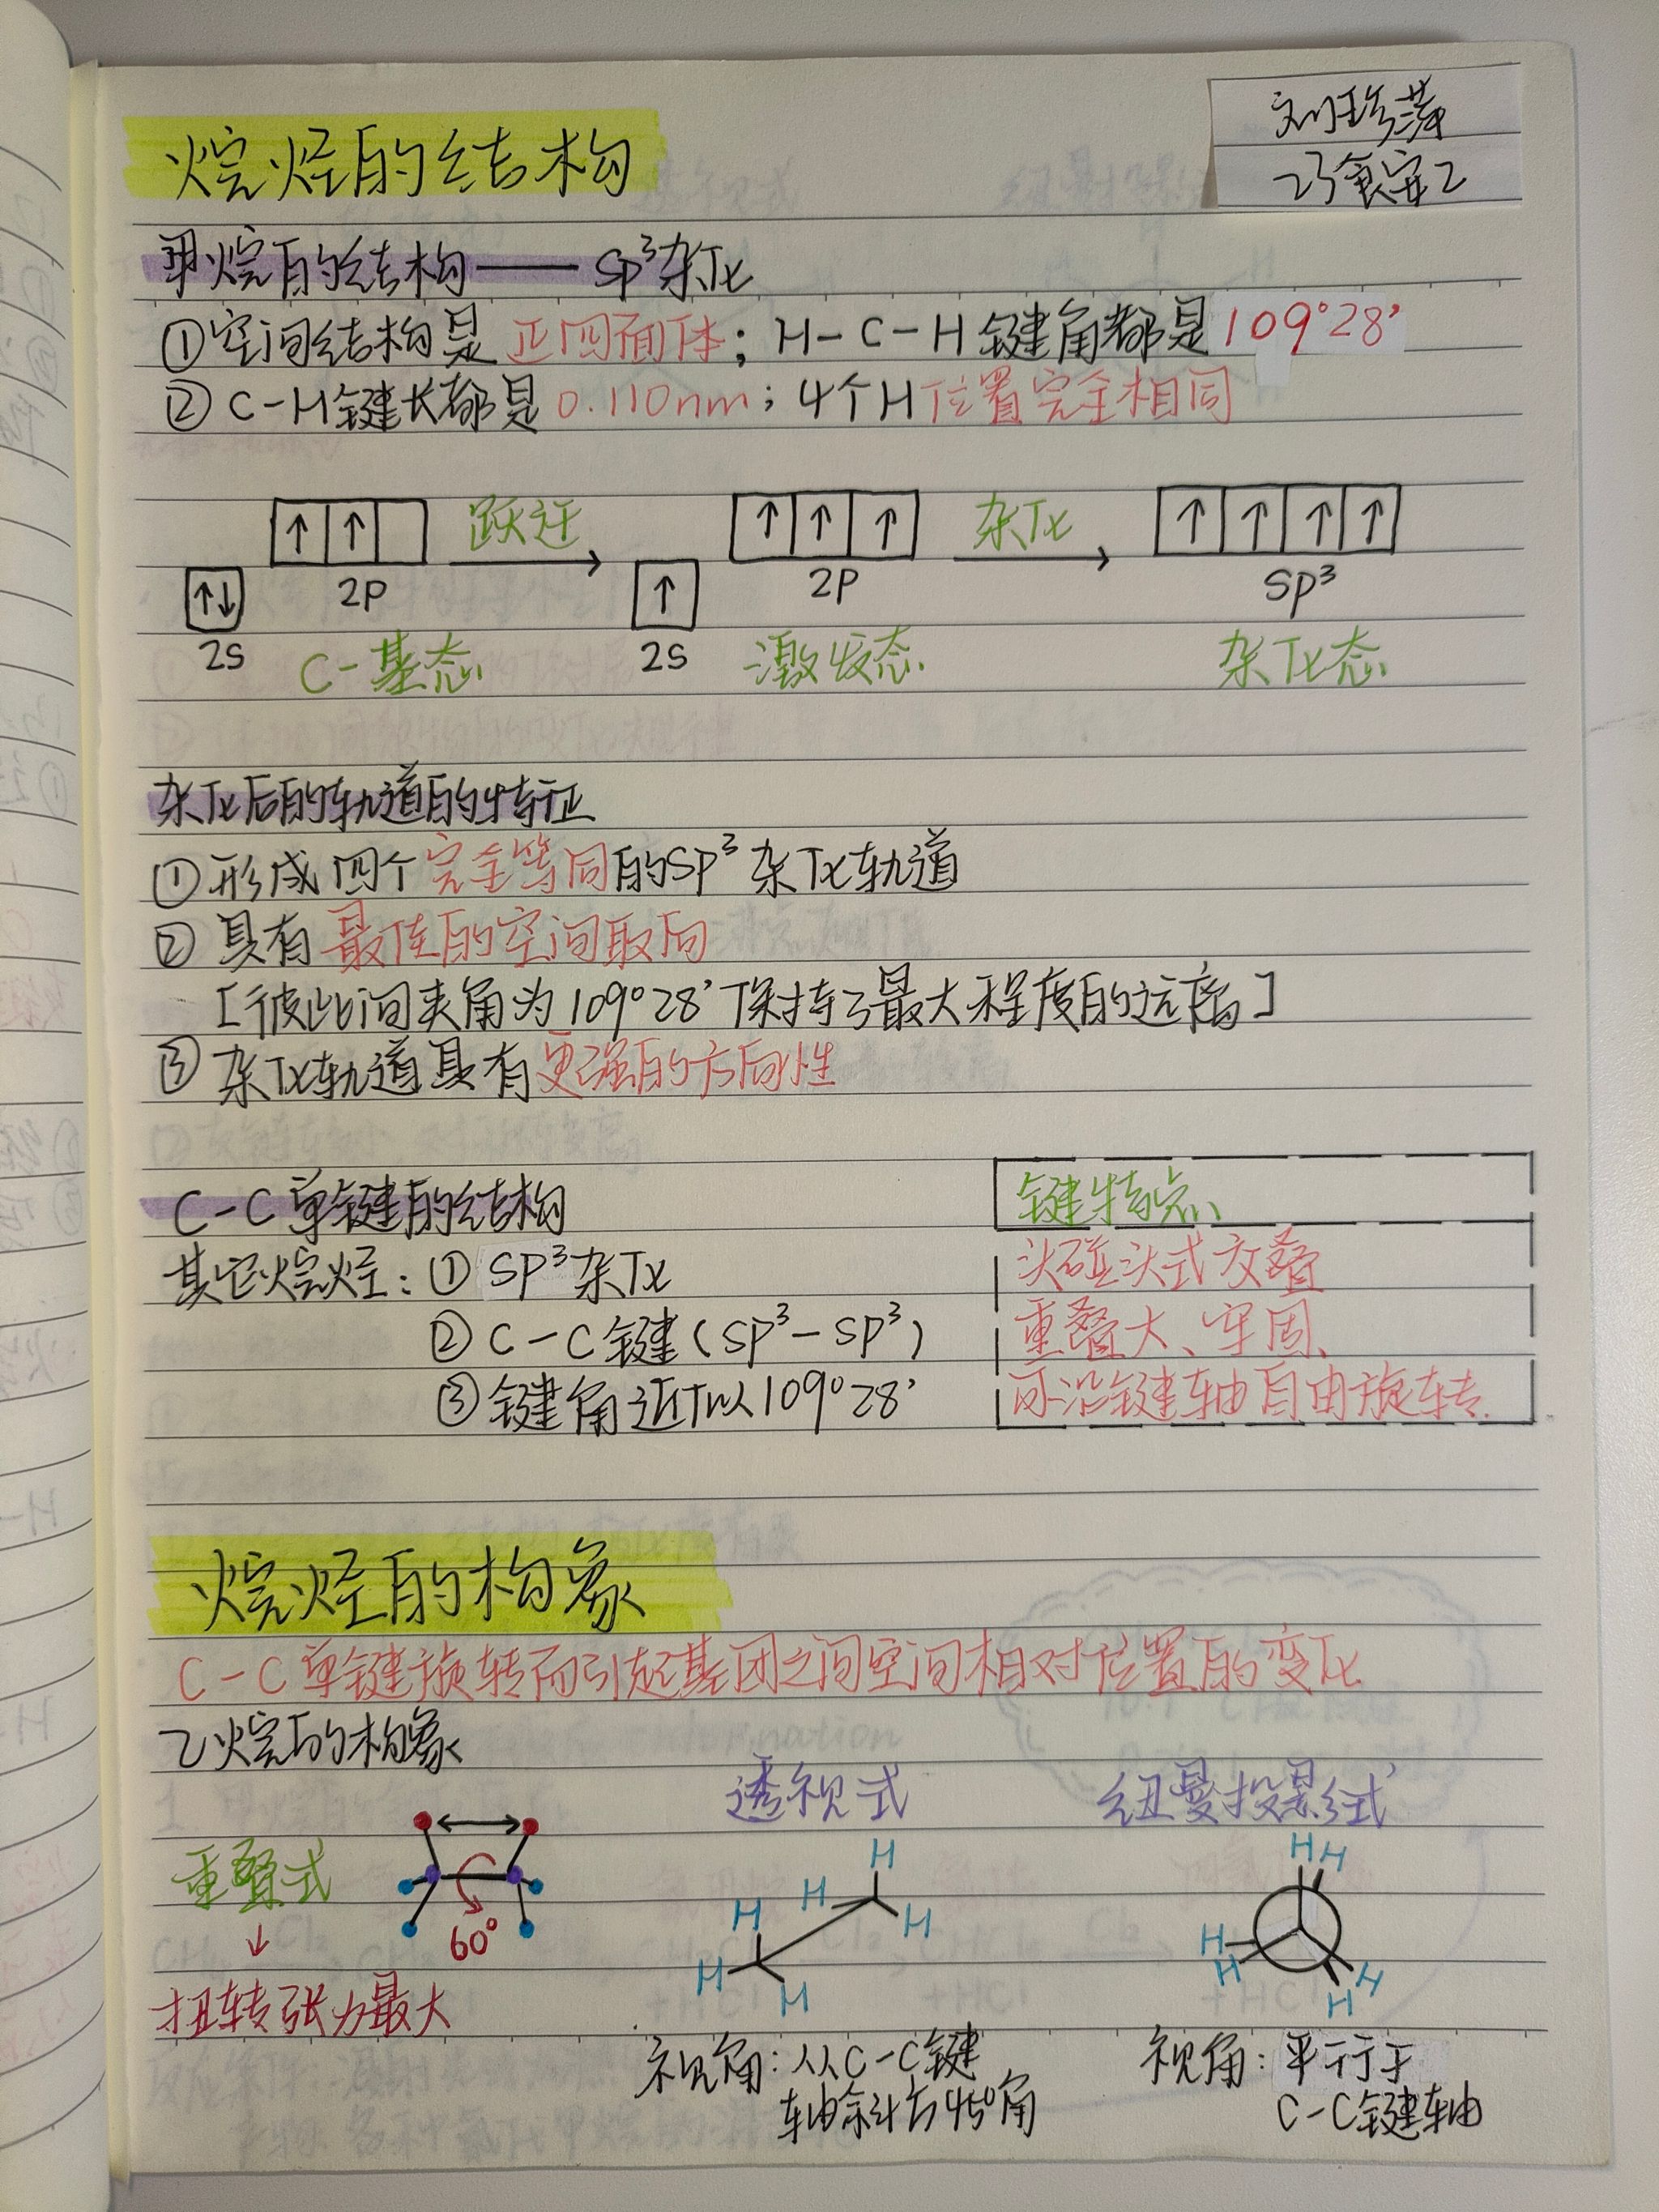 烷烃的结构
刘珍满
23食安2
甲烷的结构——sp³杂化
①空间结构是正四面体；H-C-H键角都是109°28'
②C-H键长都是0.110nm；4个H位置完全相同
↑ ↑ 跃迁 ↑ ↑ ↑ 杂化 ↑ ↑ ↑ ↑
↑↓ 2P ↑ 2P sp³
2s C-基态 2s 激发态 杂化态
杂化后的轨道的特征
①形成四个完全等同的sp³杂化轨道
②具有最佳的空间取向
[彼此间夹角为109°28'保持了最大程度的远离]
③杂化轨道具有更强的方向性
C-C单键的结构
其它烷烃：①SP³杂化
②C-C键(SP³-SP³)
③键角近似109°28'
键特点
头碰头式交叠
重叠大、牢固、
可沿键轴自由旋转.
烷烃的构象
C-C单键旋转而引起基团之间空间相对位置的变化
乙烷的构象
透视式 纽曼投影式
重叠式
↓
扭转张力最大
60°
H
H H
H
H H
H H
H
H
H
H
视角：从C-C键
轴斜右45°角
视角：平行于
C-C键轴